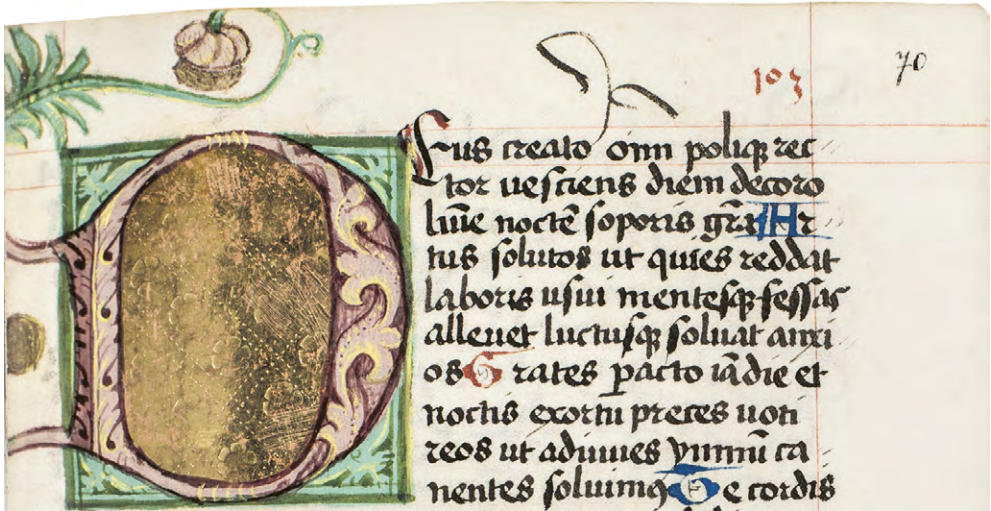 103
70
Eus creato om̄ poliqꝫ rec
tor uesciens diem decoro
lūīe noctē soporis gr̄a Ar
tus solutos ut quies reddat
laboris usui mentesqꝫ fessas
alleuet luctusqꝫ soluat anxi
os G rates ꝑacto iādie et
noctis exortu preces uoti
reos ut adiuues ymnū ca
nentes soluimꝰ T e cordis